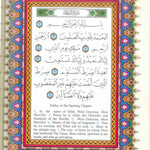 بِسْمِ اللَّهِ الرَّحْمَٰنِ الرَّحِيمِ
الْحَمْدُ لِلَّهِ رَبِّ الْعَالَمِينَ
الرَّحْمَٰنِ الرَّحِيمِ مَالِكِ يَوْمِ الدِّينِ
إِيَّاكَ نَعْبُدُ وَإِيَّاكَ نَسْتَعِينُ اهْدِنَا
الصِّرَاطَ الْمُسْتَقِيمَ صِرَاطَ الَّذِينَ
أَنْعَمْتَ عَلَيْهِمْ غَيْرِ الْمَغْضُوبِ
عَلَيْهِمْ وَلَا الضَّالِّينَ
Fatiha, or the Opening Chapter.
1. In the name of Allah, Most Gracious, Most
Merciful. 2. Praise be to Allah, the Cherisher and
Sustainer of the Worlds; 3. Most Gracious, Most
Merciful; 4. Master of the Day of Judgment. 5. Thee
do we worship, and Thine aid we seek. 6. Show us
the straight way, 7. The way of those on whom Thou
hast bestowed Thy Grace, those whose (portion) is not
wrath, and who go not astray.